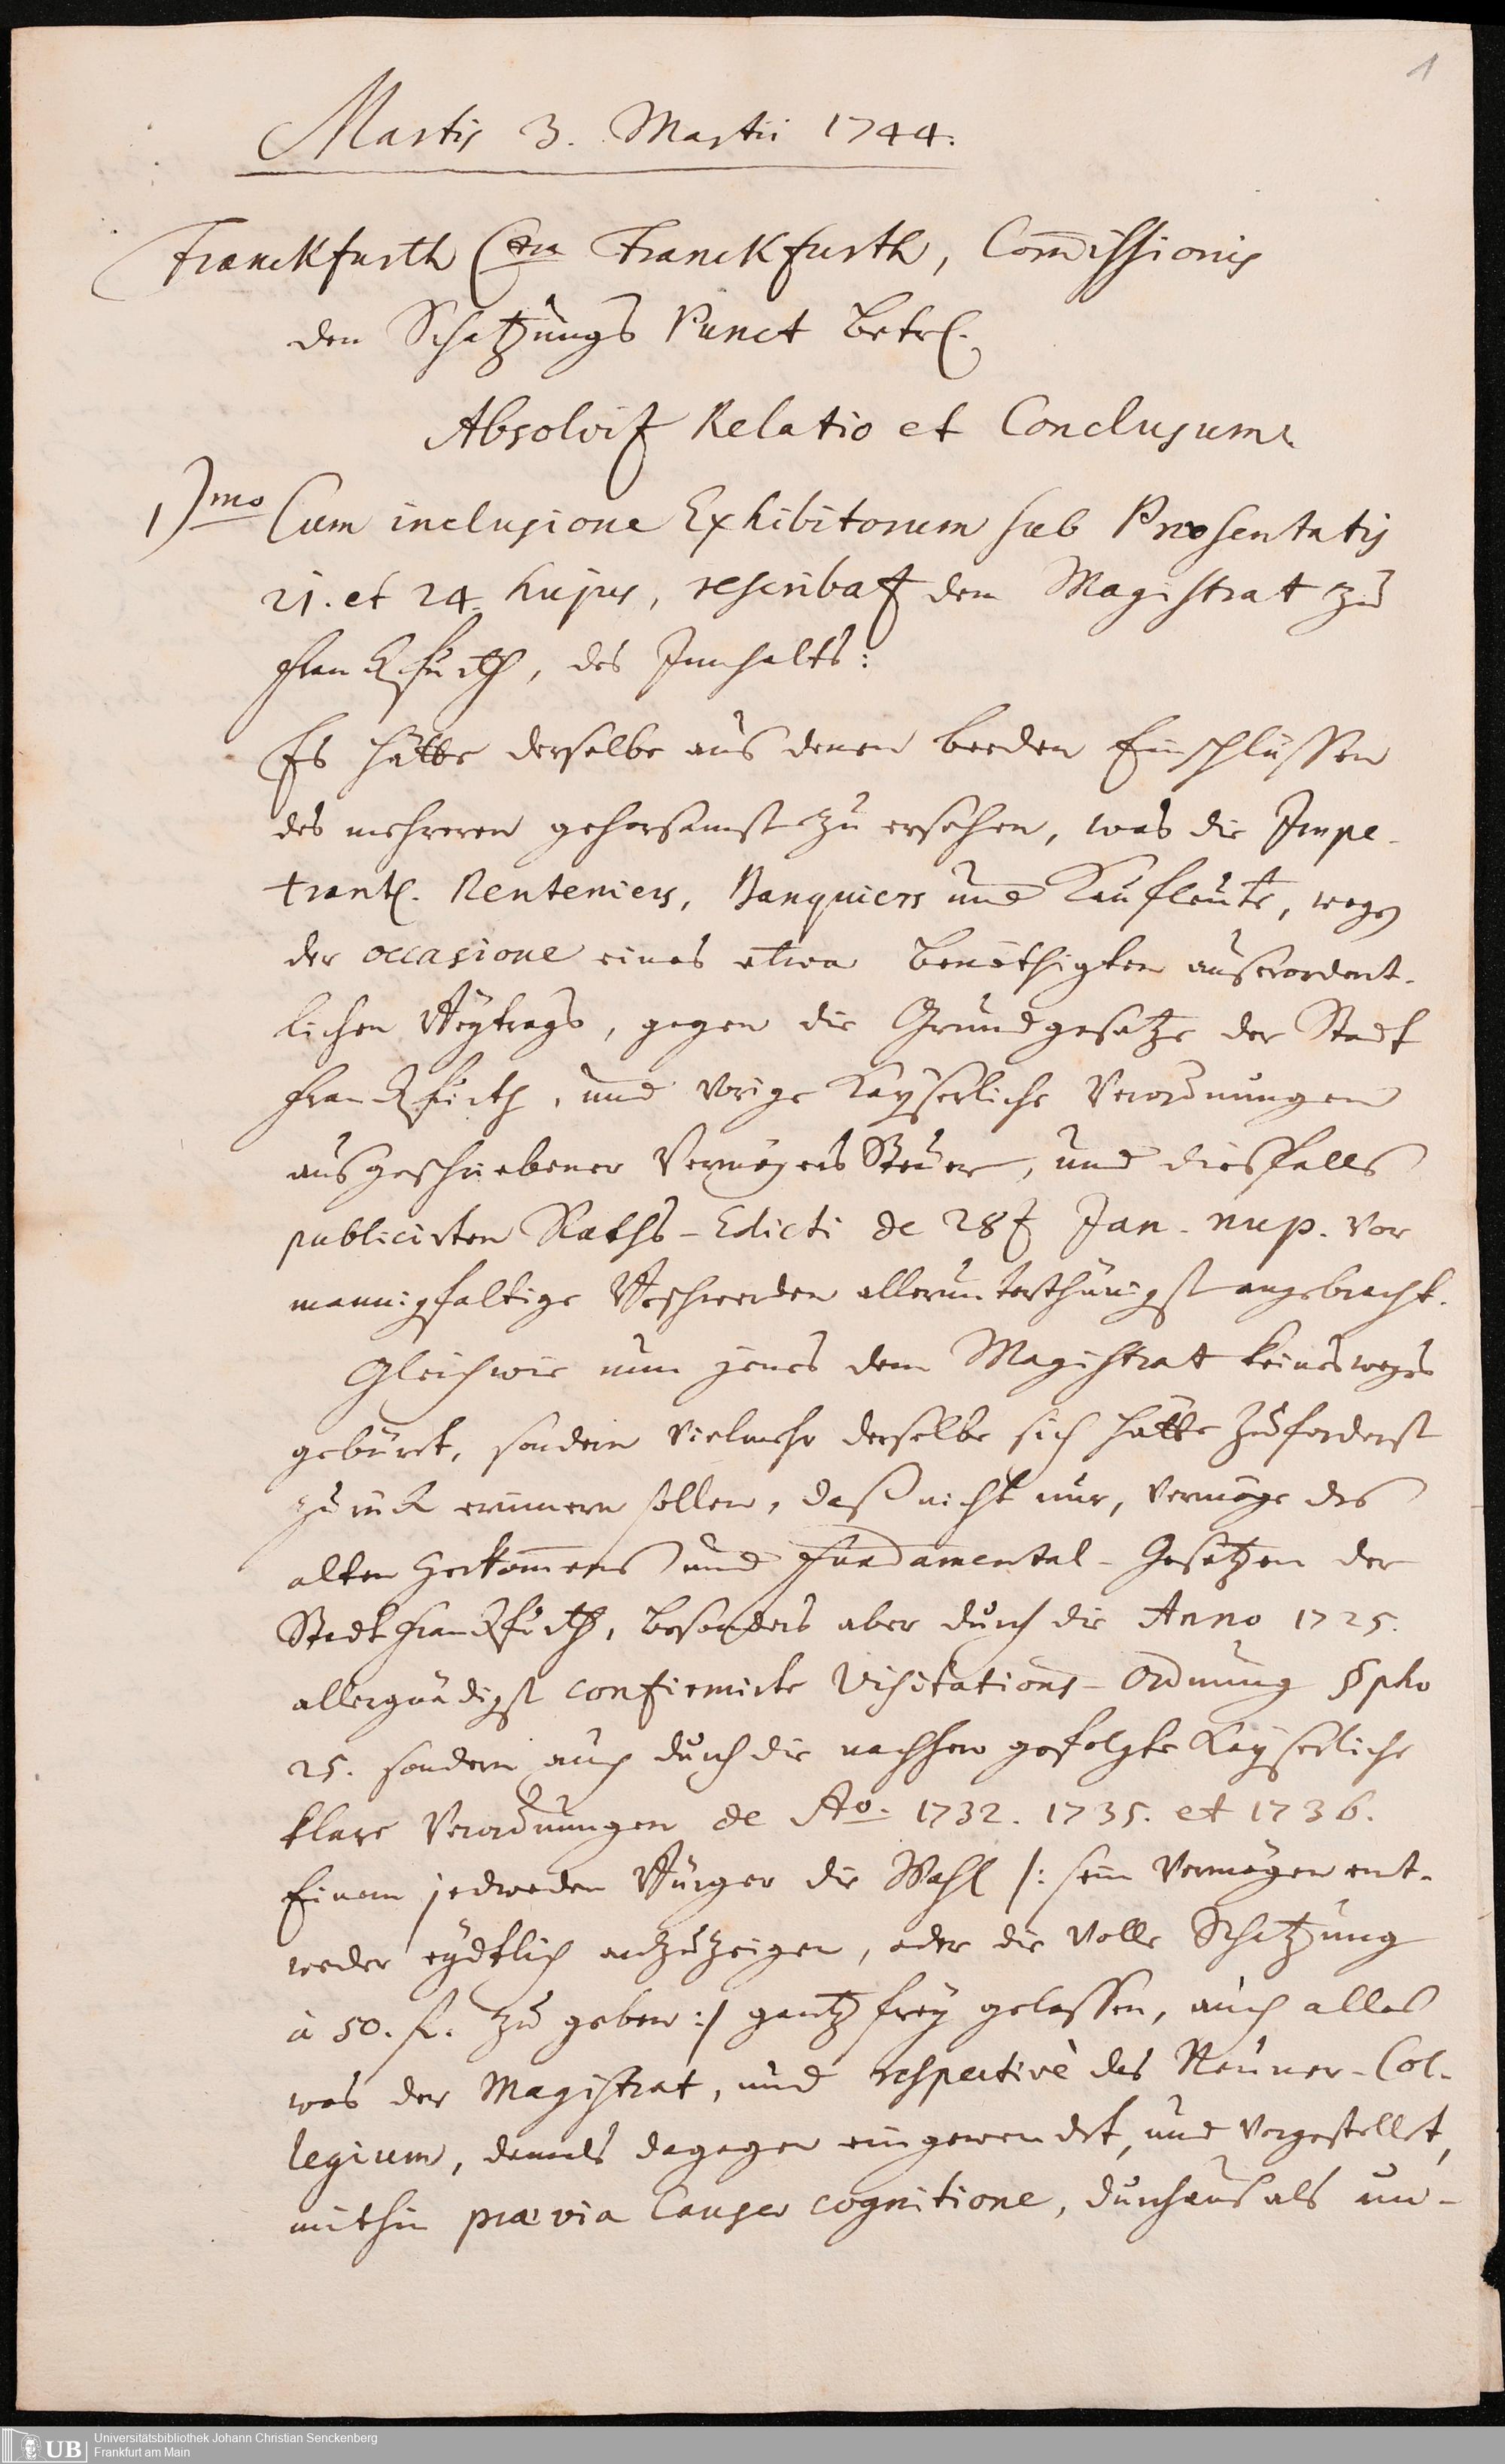 1
Martis 3. Martii 1744.
Franckfurth Ctra Franckfurth, Com̄issionis
den Schatzungs Punct betrf.
Absolvit Relatio et Conclusum.
1)mo Cum inclusione Exhibitorum sub Præsentatis
21. et 24. hujus, rescribat dem Magistrat zu
Franckfurth, des Innhalts:
Es hätte derselbe aus denen beeden Einschlüssen
des mehreren gehorsamst zu ersehen, was die Impe-
trant. Renteniers, Banquiers und Kaufleute, wegen
der occasione eines etwa benöthigten auserordent-
lichen Beytrags, gegen die Grundgesetze der Stadt
Franckfurth, und vorige Kayserliche Verordnungen
ausgeschriebener Vermögens Steuer, und diesfalls
publicirten Raths-Edicti de 28t Jan. nup. vor
mannigfaltige Beschwerden allerunterthänigst angebracht.
Gleichwie nun jenes dem Magistrat keinesweges
gebürt, sondern vielmehr derselbe sich hätte zuforderst
zurück erinnern sollen, daß nicht nur, vermöge des
alten Herkom̄ens und Fundamental-Gesetzen der
Stadt Franckfurth, besonders aber durch die Anno 1725.
allergnädigst confirmirte Visitations-Ordnung §pho
25. sondern auch durch die nachhero gefolgte Kayserliche
klare Verordnungen de Ao. 1732. 1735. et 1736.
Einem jedweden Bürger die Wahl /: sein Vermögen ent-
weder eydtlich anzuzeigen, oder die volle Schatzung
à 50. fl. zu geben :/ gantz frey gelassen, auch alles
was der Magistrat, und respectivè das Neuner-Col-
legium, damals dagegen eingewendet, und vorgestellet,
mithin prævia Causæ cognitione, durchaus als un-
UB
Universitätsbibliothek Johann Christian Senckenberg
Frankfurt am Main